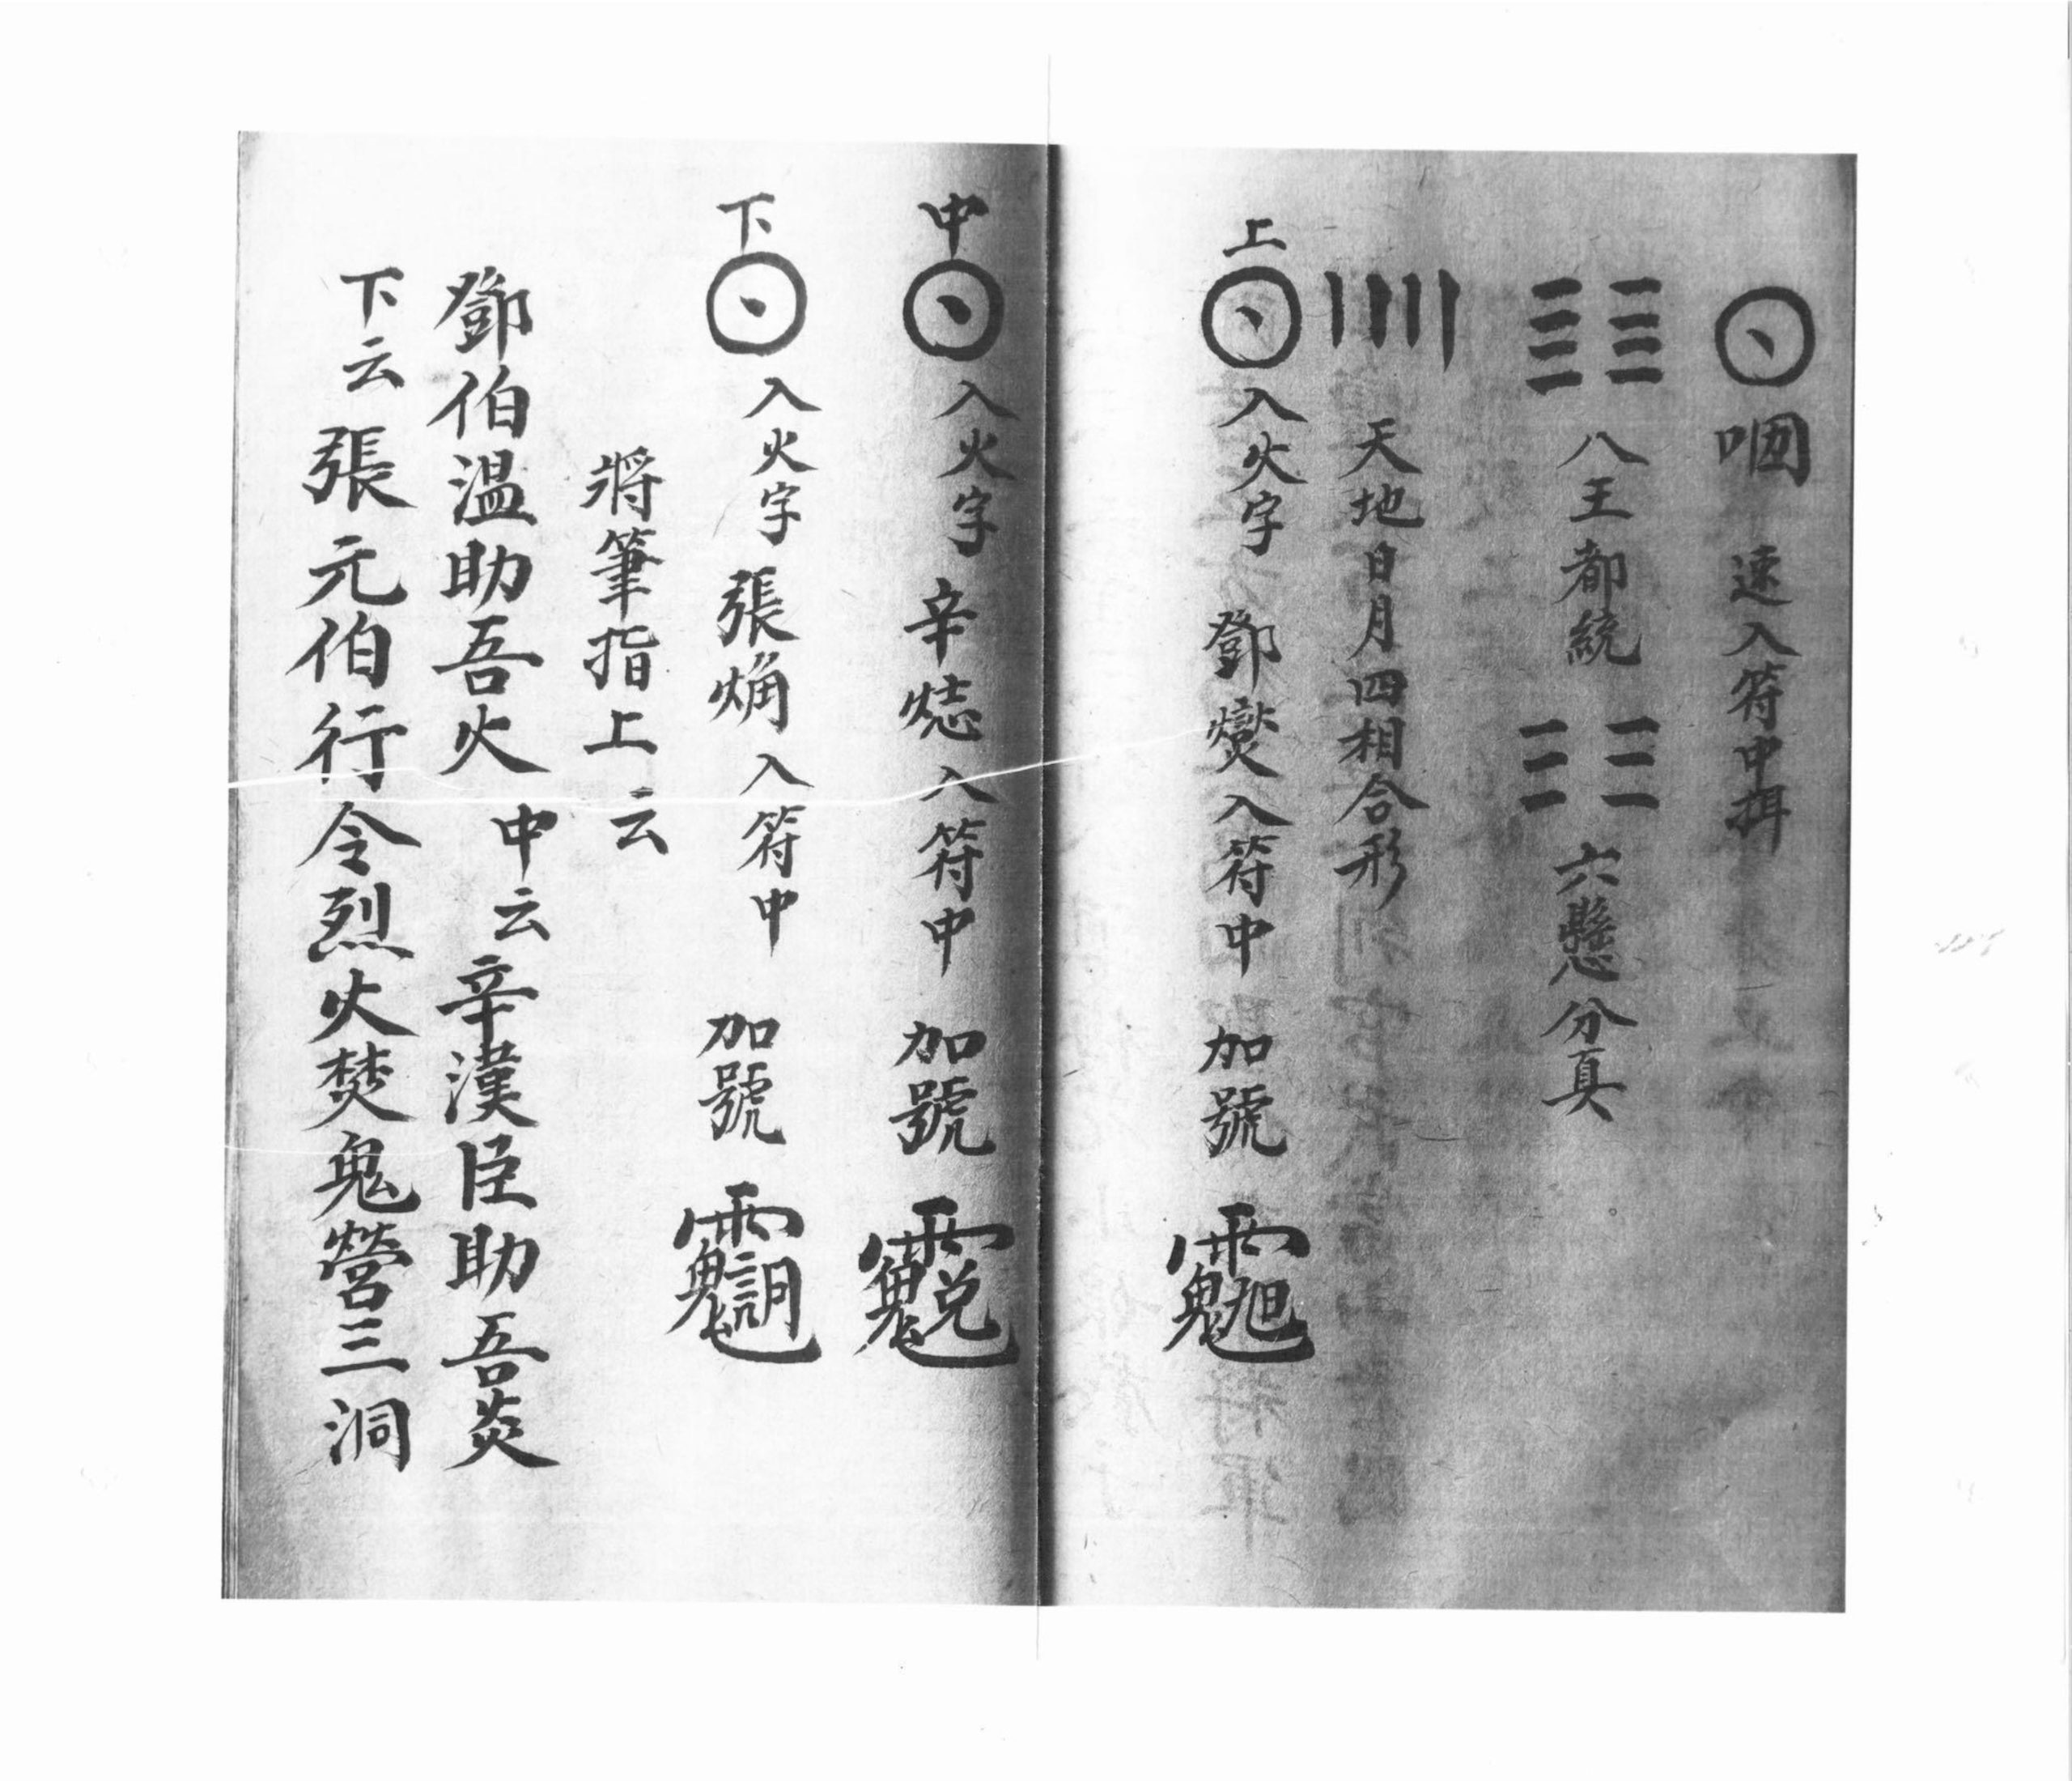 咽 速入符中拜
八王都統 六懸分真
天地日月四相合形
上 入火字 鄧燮入符中 加號
中 入火字 辛㷅入符中 加號
下 入火字 張㷌入符中 加號
將筆指上云
鄧伯溫助吾火 中云 辛漢臣助吾炎
下云 張元伯行令烈火焚鬼營三洞